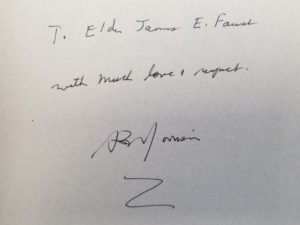 T. Elder James E. Faust
with much love & respect.